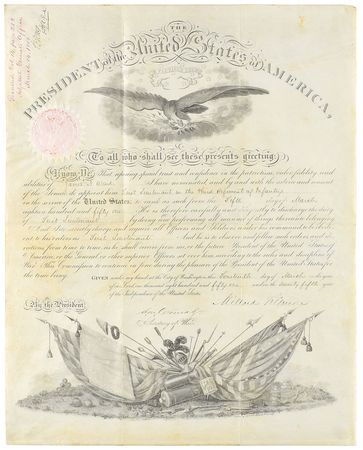 THE
PRESIDENT of the United States of America,
To all who shall see these presents greeting:
Know Ye, That reposing special trust and confidence in the patriotism, valor, fidelity and
abilities of I have nominated, and by and with the advice and consent
of the Senate do appoint him First Lieutenant in the Third Regiment of
in the service of the United States: to rank as such from the day of March
eighteen hundred and fifty one He is therefore carefully and diligently to discharge the duty
of First Lieutenant by doing and performing all manner of things thereunto belonging.
And I do strictly charge and require all Officers and Soldiers under his command to be obedi-
ent to his orders as First Lieutenant And he is to observe and follow such orders, and di-
rections, from time to time, as he shall receive from me, or the future President of the United States of
America, or the General or other superior Officers set over him, according to the rules and discipline of
War. This Commission to continue in force during the pleasure of the President of the United States, for
the time being.
GIVEN under my hand at the City of Washington this day of March in the year
of our Lord one thousand eight hundred and fifty one and in the seventy fifth year
of the Independence of the United States.
By the President,
Millard Fillmore
Secretary of War.